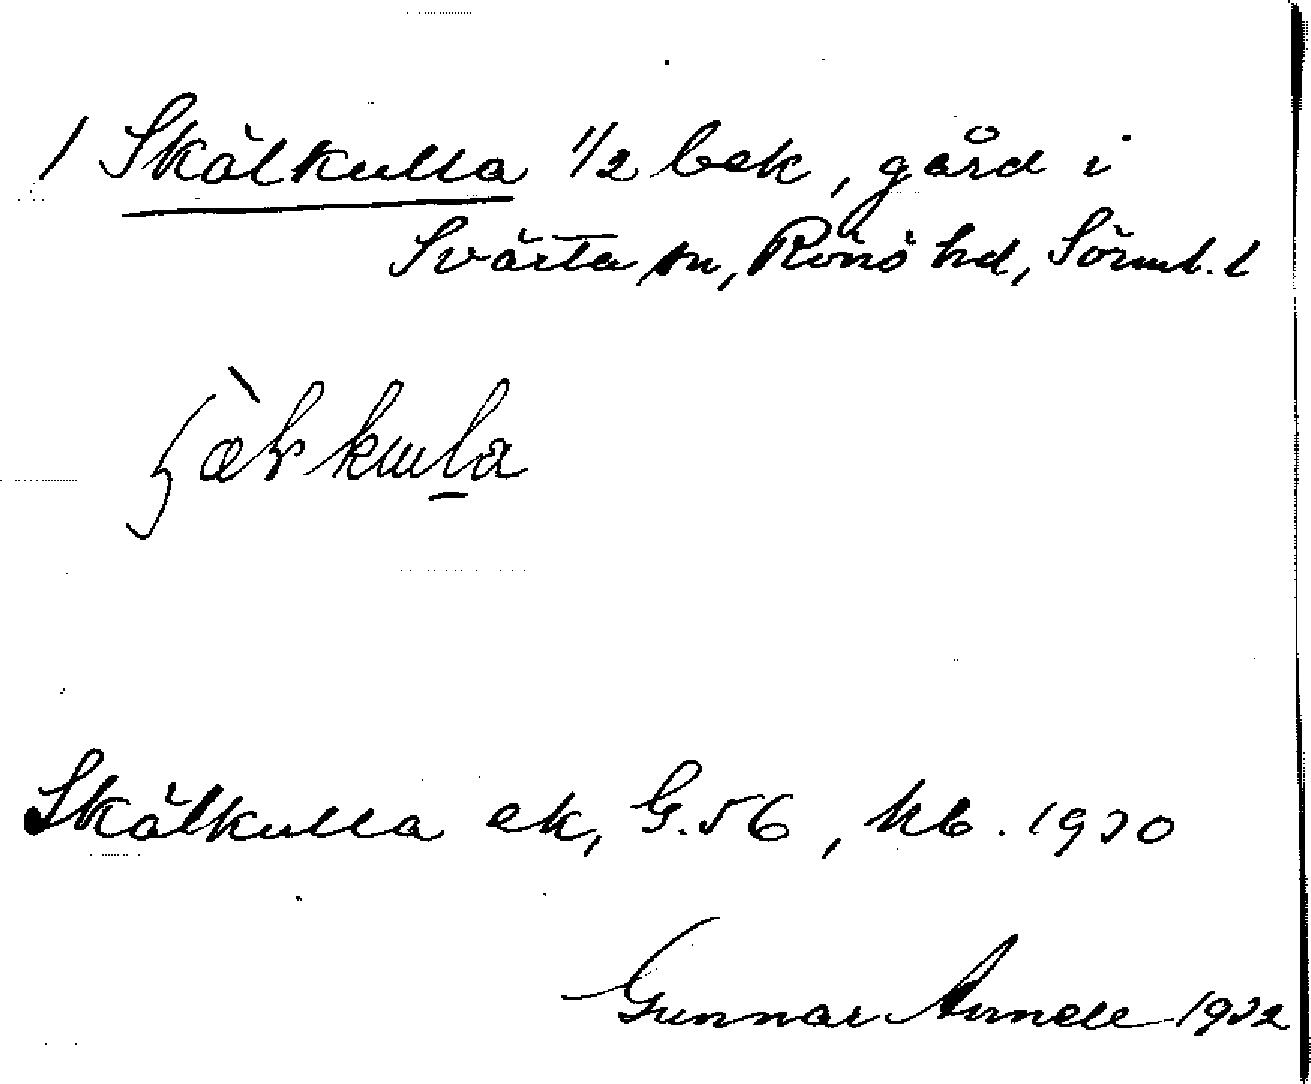 1 Skälkulla 1/2 bek, gård i
Svärta sn, Rönö hd, Sörml. l
Skälkulla ek, G. 56, kb. 1930
Gunnar Arnell 1932